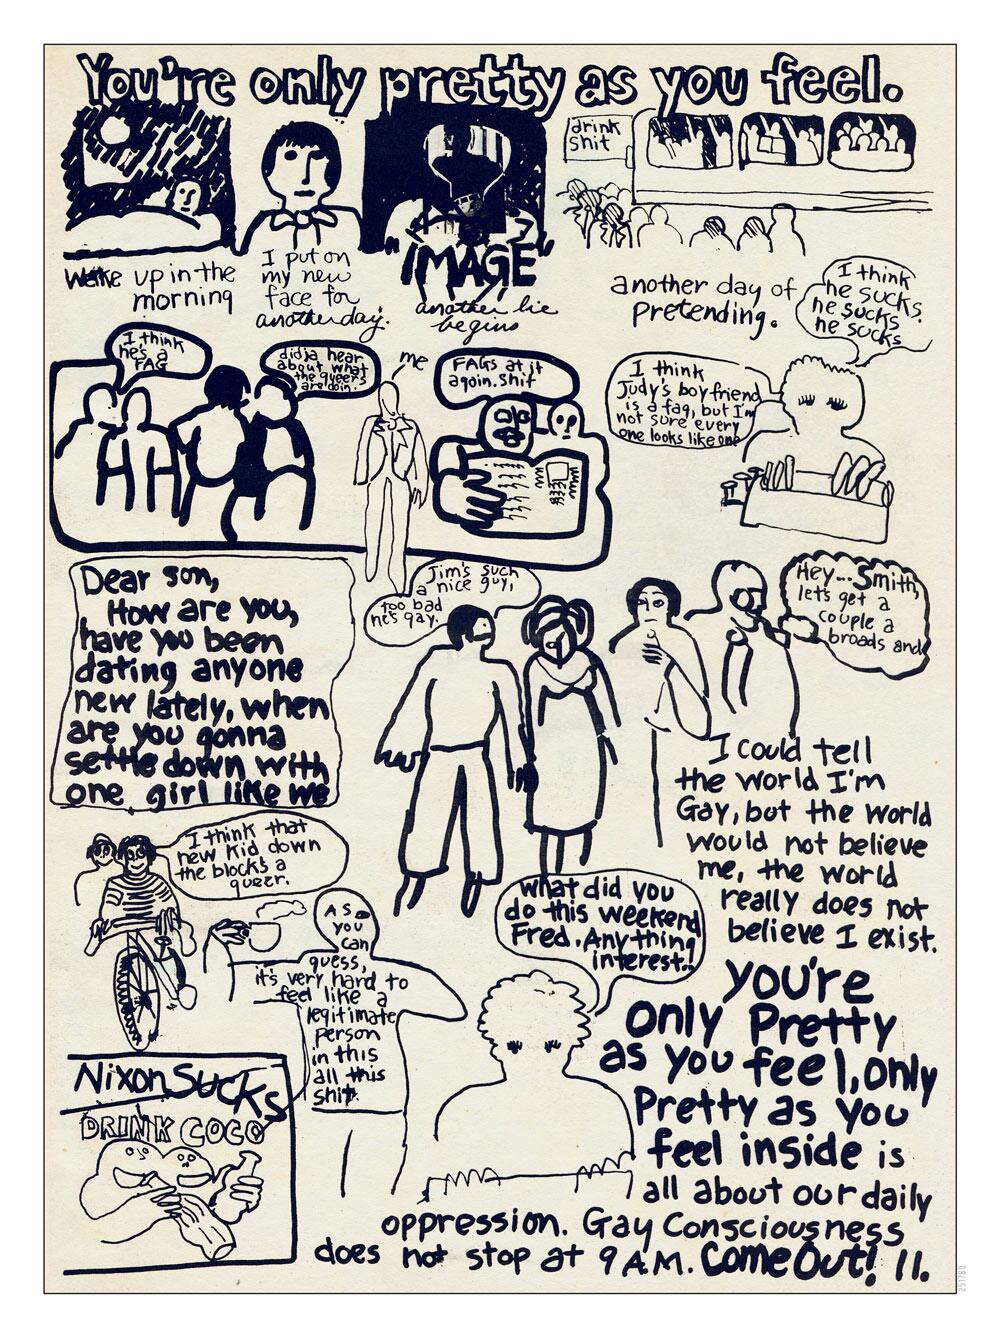 You're only pretty as you feel.
drink
shit
Wake up in the
morning
I put on
my new
face for
another day.
"IMAGE"
another lie
begins
another day of
pretending.
I think
he sucks.
he sucks
he sucks
I think
he's a
FAG
didja hear
about what
the queers
are doin.
me
FAGs at it
again. shit
I think
Judy's boyfriend
is a fag, but I'm
not sure every
one looks like one
Dear son,
How are you,
have you been
dating anyone
new lately, when
are you gonna
settle down with
one girl like we
Jim's such
a nice guy,
too bad
he's gay.
Hey... Smith,
let's get a
couple a
broads and
I could tell
the world I'm
Gay, but the world
would not believe
me, the world
really does not
believe I exist.
I think that
new kid down
the block's a
queer.
As
you
can
guess,
it's very hard to
feel like a
legitimate
person
in this
all this
shit.
what did you
do this weekend
Fred. Anything
interest..!
Nixon Sucks
DRINK COCO
you're
only Pretty
as you feel, only
Pretty as you
feel inside is
all about our daily
oppression. Gay Consciousness
does not stop at 9 A.M. Come Out! 11.
251780